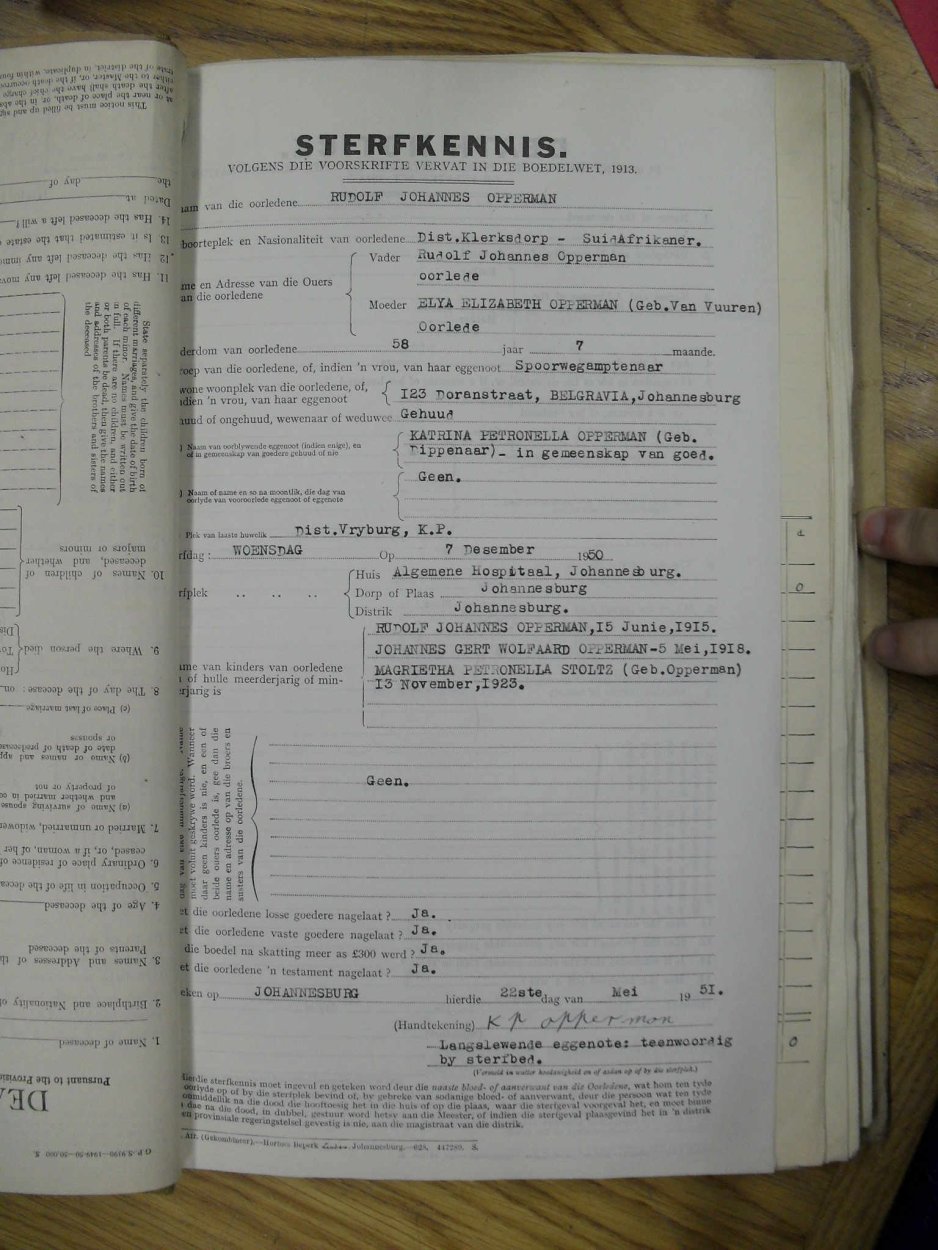 STERFKENNIS.
VOLGENS DIE VOORSKRIFTE VERVAT IN DIE BOEDELWET, 1913.
van die oorledene RUDOLF JOHANNES OPPERMAN
boorteplek en Nasionaliteit van oorledene Dist.Klerksdorp - SuidAfrikaner.
me en Adresse van die Ouers
an die oorledene
Vader Rudolf Johannes Opperman
oorlede
Moeder ELYA ELIZABETH OPPERMAN (Geb.Van Vuuren)
Oorlede
derdom van oorledene 58 jaar 7 maande.
roep van die oorledene, of, indien 'n vrou, van haar eggenoot Spoorwegamptenaar
wone woonplek van die oorledene, of,
ndien 'n vrou, van haar eggenoot
I23 Doranstraat, BELGRAVIA,Johannesburg
uud of ongehuud, wewenaar of weduwee Gehuud
) Naam van oorblywende eggenoot (indien enige), en
of in gemeenskap van goedere gehuud of nie
KATRINA PETRONELLA OPPERMAN (Geb.
Dippenaar)- in gemeenskap van goed.
) Naam of name en so na moontlik, die dag van
oorlyde van vooroorlede eggenoot of eggenote
Geen.
Plek van laaste huwelik Dist.Vryburg, K.P.
rfdag : WOENSDAG Op 7 Desember 1950
rfplek .. .. ..
Huis Algemene Hospitaal, Johannesburg.
Dorp of Plaas Johannesburg
Distrik Johannesburg.
ame van kinders van oorledene
of hulle meerderjarig of min-
erjarig is
RUDOLF JOHANNES OPPERMAN,15 Junie,1915.
JOHANNES GERT WOLFAARD OPPERMAN-5 Mei,1918.
MAGRIETHA PETRONELLA STOLTZ (Geb.Opperman)
13 November,1923.
moet voluit geskrywe word. Wanneer
daar geen kinders is nie, en een of
beide ouers oorlede is, gee dan die
name en adresse op van die broers en
susters van die oorledene.
Geen.
et die oorledene losse goedere nagelaat ? Ja.
et die oorledene vaste goedere nagelaat ? Ja.
die boedel na skatting meer as £300 werd ? Ja.
et die oorledene 'n testament nagelaat ? Ja.
eken op JOHANNESBURG hierdie 22ste dag van Mei 1951.
(Handtekening) K P opperman
Langslewende eggenote: teenwoordig
by sterfbed.
(Vermeld in watter hoedanigheid en of aldan op of by die sterfplek.)
Hierdie sterfkennis moet ingevul en geteken word deur die naaste bloed- of aanverwant van die Oorledene, wat hom ten tyde
oorlyde op of by die sterfplek bevind of, by gebreke van sodanige bloed- of aanverwant, deur die persoon wat ten tyde
onmiddellik na die dood die hooftoesig het in die huis of op die plaas, waar die sterfgeval voorgeval het, en moet binne
dae na die dood, in dubbel, gestuur word hetsy aan die Meester, of indien die sterfgeval plaasgevind het in 'n distrik
provinsiale regeringstelsel gevestig is nie, aan die magistraat van die distrik.
Johannesburg. 628. 447280. S.
DEA
Pursuant to the Provisio
1. Name of deceased
2. Birthplace and Nationality o
3. Names and Addresses of th
Parents of the deceased
4. Age of the deceased
5. Occupation in life of the decea
6. Ordinary place of residence of
ceased, or, if a woman, of her
7. Married or unmarried, widower
(a) Name of surviving spouse
and whether married in co
of property or not
(b) Name or names and app
date of death of predecease
or spouses
(c) Place of last marriage
8. The day of the decease : on
9. Where the person died
Ho
To
Dis
10. Names of children of
deceased, and whether
majors or minors
State separately the children born of
different marriages, and give the date of birth
of each minor. Names must be written out
in full. If there are no children, and either
or both parents be dead, then give the names
and addresses of the brothers and sisters of
the deceased
11. Has the deceased left any mova
12. Has the deceased left any immo
13 Is it estimated that the estate
14. Has the deceased left a will?
Dated at
the day of
This notice must be filled up and sig
at or near the place of death, or in the abs
after the death shall have the chief charge
either to the Master, or, if the death occurred
trate of the district, in duplicate, within four
G P S.9190—1949-50—50,000 S.